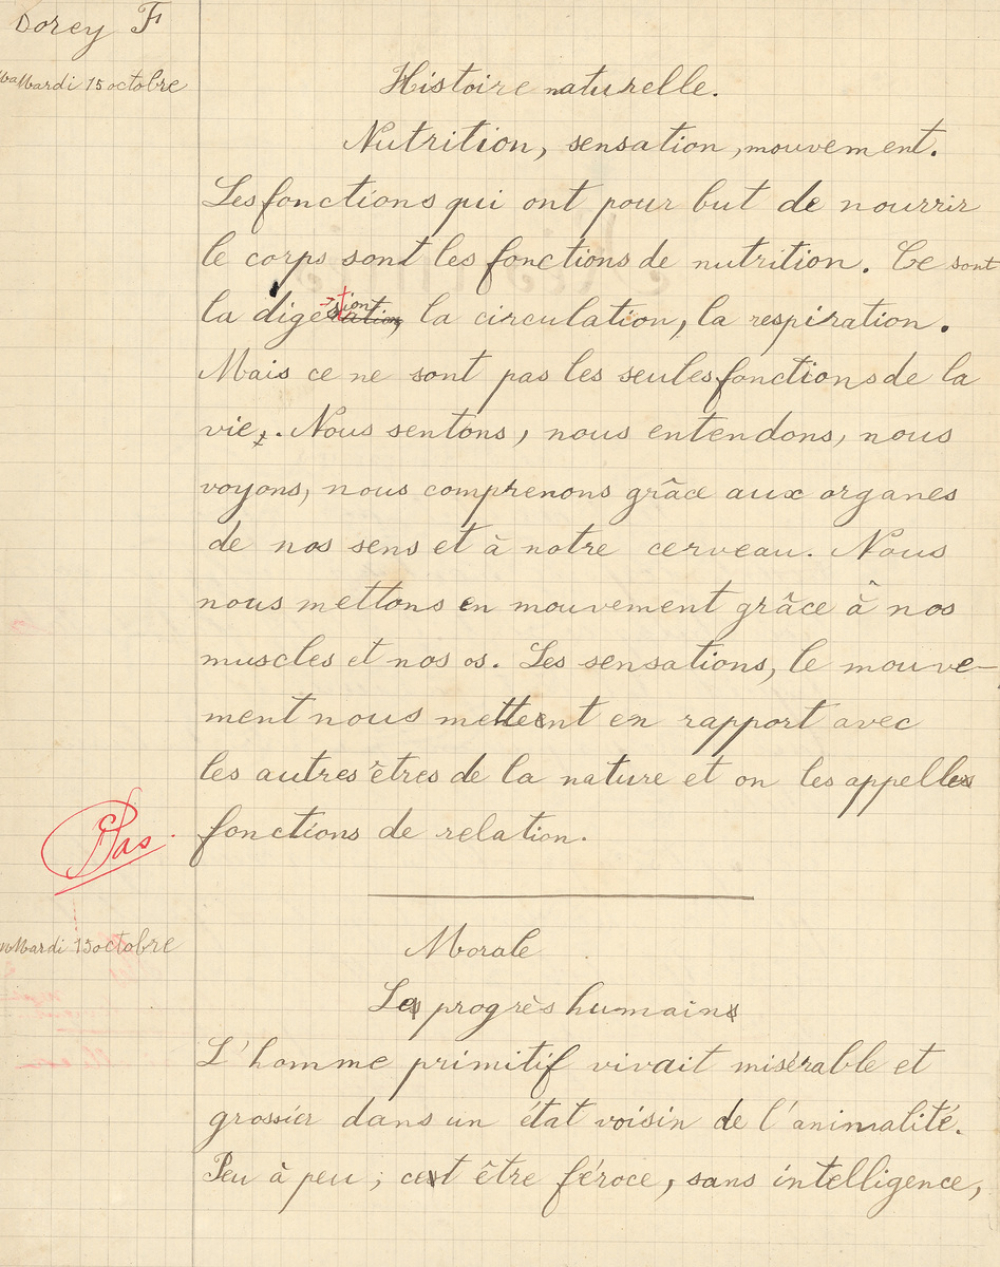 Dorey F
Mardi 15 octobre
Histoire naturelle.
Nutrition, sensation, mouvement.
Les fonctions qui ont pour but de nourrir
le corps sont les fonctions de nutrition. Ce sont
la digestion, la circulation, la respiration.
Mais ce ne sont pas les seules fonctions de la
vie. Nous sentons, nous entendons, nous
voyons, nous comprenons grâce aux organes
de nos sens et à notre cerveau. Nous
nous mettons en mouvement grâce à nos
muscles et nos os. Les sensations, le mouve-
ment nous mettent en rapport avec
les autres êtres de la nature et on les appelle
fonctions de relation.
Pas.
Mardi 15 octobre
Morale
Le progrès humain
L'homme primitif vivait misérable et
grossier dans un état voisin de l'animalité.
Peu à peu ; cet être féroce, sans intelligence,